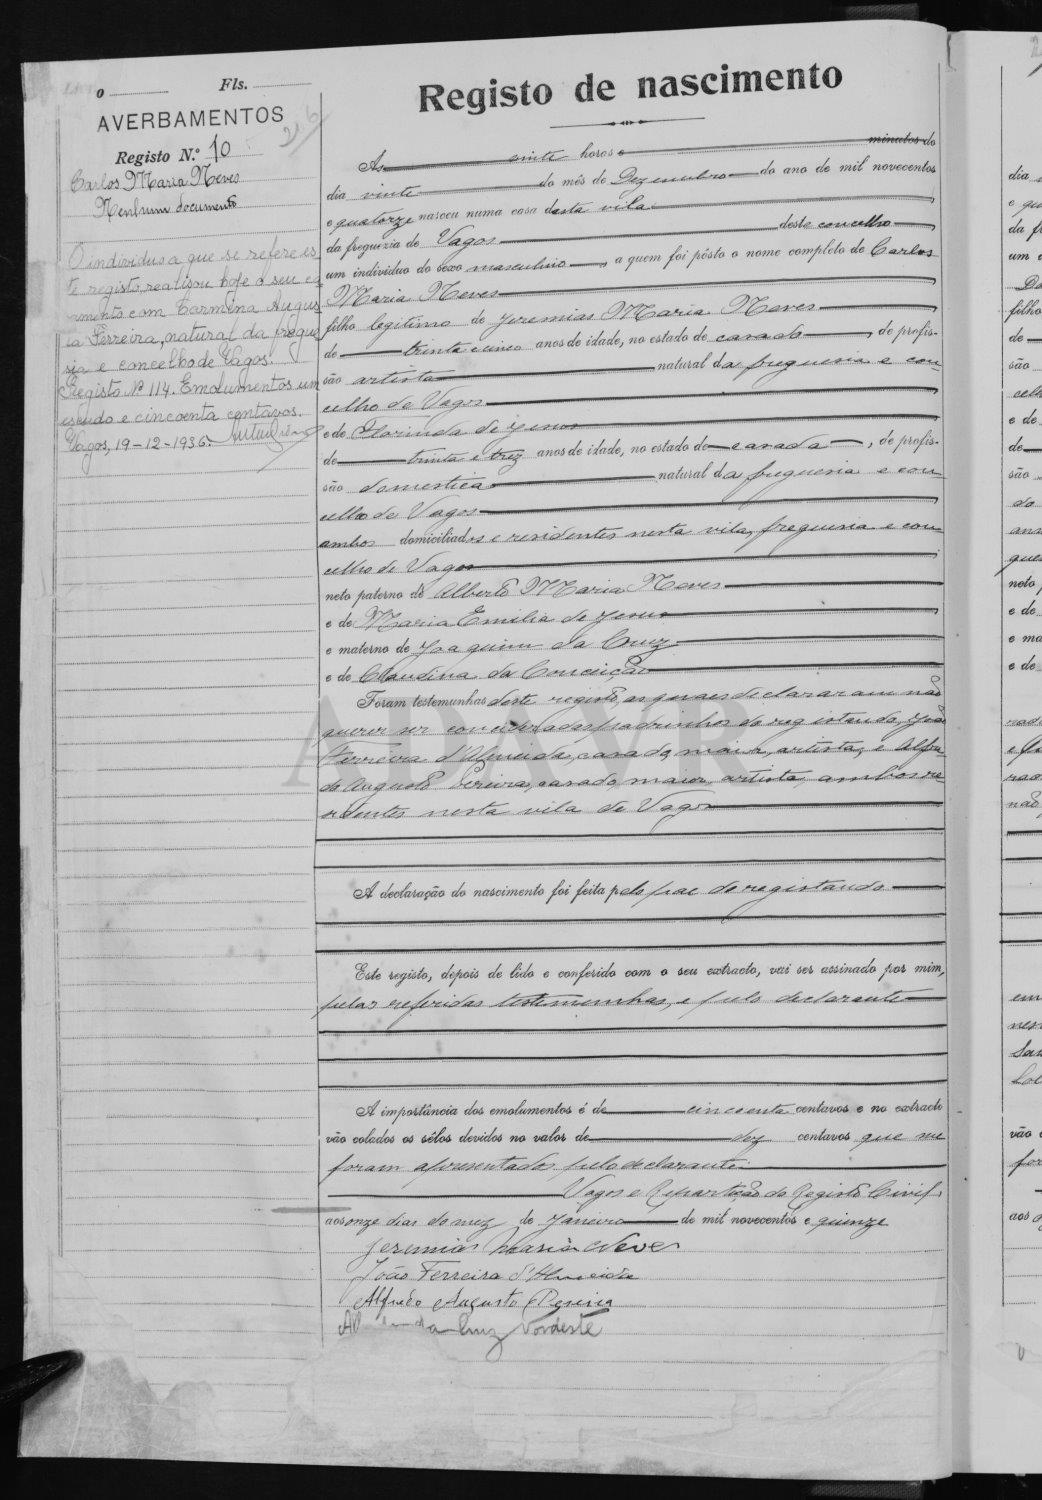 Fls.
AVERBAMENTOS
Registo N.º 10
Carlos Maria Neves
Nenhum documento
O individuo a que se refere es-
te registo, realisou hoje o seu ca-
samento com Carmina Augus-
ta Ferreira, natural da fregue-
sia e concelho de Vagos.
Registo Nº 114. Emolumentos um
escudo e cincoenta centavos.
Vagos, 19-12-1936.
Registo de nascimento
As vinte horas e minutos do
dia vinte do mês de Dezembro do ano de mil novecentos
e quatorze nasceu numa casa desta vila
da freguezia de Vagos deste concelho
um individuo do sexo masculino, a quem foi pôsto o nome completo de Carlos
Maria Neves
filho legitimo de Jeremias Maria Neves
de trinta e cinco anos de idade, no estado de casado, de profis-
são artista natural da freguesia e con-
celho de Vagos
e de Florinda de Jesus
de trinta e trez anos de idade, no estado de casada, de profis-
são domestica natural da freguesia e con-
celho de Vagos
ambos domiciliados e residentes nesta vila, freguesia e con-
celho de Vagos
neto paterno de Alberto Maria Neves
e de Maria Emilia de Jesus
e materno de Joaquim da Cruz
e de Claudina da Conceição
Foram testemunhas deste registo, as quaes declararam não
querer ser consideradas padrinhos do registando, João
Ferreira d'Almeida, casado, maior, artista, e Alfre-
do Augusto Pereira, casado, maior, artista, ambos re-
sidentes nesta vila de Vagos
ADAVR
A declaração do nascimento foi feita pelo pae do registando
Este registo, depois de lido e conferido com o seu extracto, vai ser assinado por mim,
pelas referidas testemunhas, e pelo declarante
A importância dos emolumentos é de cincoenta centavos e no extracto
vão colados os sêlos devidos no valor de dez centavos que me
foram apresentados pelo declarante.
Vagos e Repartição do Registo Civil,
aos onze dias do mez de Janeiro de mil novecentos e quinze
Jeremias Maria Neves
João Ferreira d'Almeida
Alfredo Augusto Pereira
da Cruz Nordeste